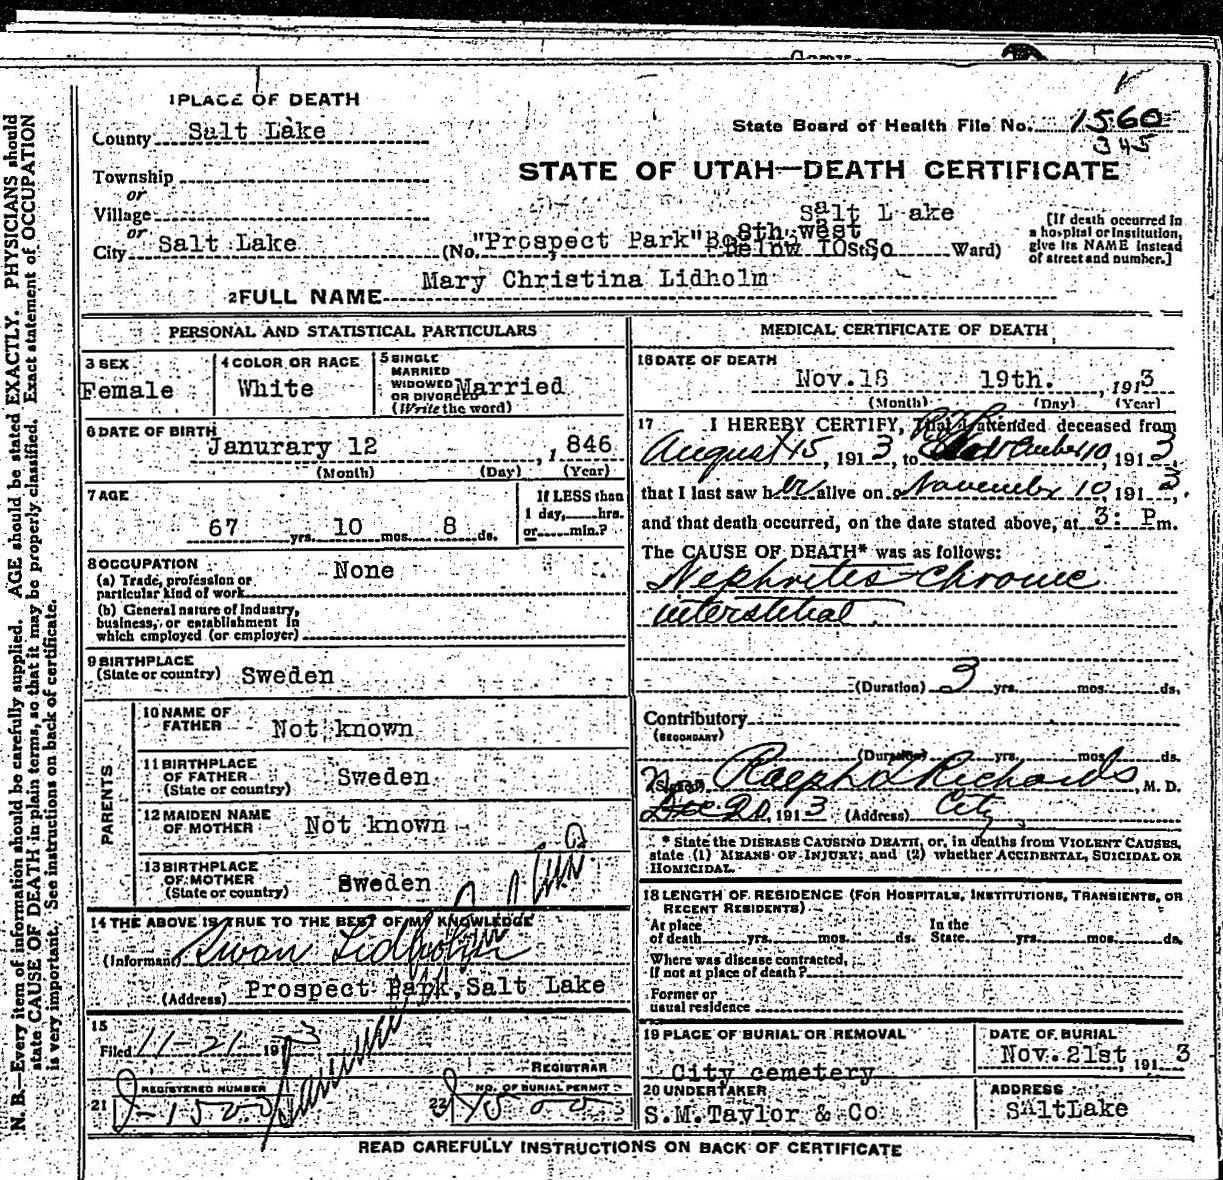 1 PLACE OF DEATH
County Salt Lake
State Board of Health File No. 1560
345
Township
STATE OF UTAH—DEATH CERTIFICATE
or
Village
or
City Salt Lake
Salt Lake
(No. "Prospect Park" 8th west
Below 10 St. So Ward)
[If death occurred in
a hospital or institution,
give its NAME instead
of street and number.]
2 FULL NAME Mary Christina Lidholm
PERSONAL AND STATISTICAL PARTICULARS
3 SEX
Female
4 COLOR OR RACE
White
5 SINGLE
MARRIED
WIDOWED
OR DIVORCED
(Write the word)
Married
6 DATE OF BIRTH
Janurary 12, 1846
(Month) (Day) (Year)
7 AGE
67 yrs. 10 mos. 8 ds.
If LESS than
1 day, hrs.
or min.?
8 OCCUPATION
None
(a) Trade, profession or
particular kind of work
(b) General nature of Industry,
business, or establishment in
which employed (or employer)
9 BIRTHPLACE
(State or country) Sweden
PARENTS
10 NAME OF
FATHER Not known
11 BIRTHPLACE
OF FATHER
(State or country) Sweden
12 MAIDEN NAME
OF MOTHER Not known
13 BIRTHPLACE
OF MOTHER
(State or country) Sweden
14 THE ABOVE IS TRUE TO THE BEST OF MY KNOWLEDGE
(Informant) Swan Lidholm
(Address) Prospect Park, Salt Lake
15
Filed 11-21 1913
REGISTRAR
21 REGISTERED NUMBER
22 NO. OF BURIAL PERMIT
MEDICAL CERTIFICATE OF DEATH
16 DATE OF DEATH
Nov. 18 19th. , 1913
(Month) (Day) (Year)
17 I HEREBY CERTIFY, That I attended deceased from
August 15, 1913, to November 10, 1913,
that I last saw her alive on November 10, 1913,
and that death occurred, on the date stated above, at 3: P m.
The CAUSE OF DEATH* was as follows:
Nephrites Chronic
interstitial.
(Duration) 3 yrs. mos. ds.
Contributory
(SECONDARY)
(Duration) yrs. mos. ds.
(Signed) Ralph Richards, M. D.
20, 1913 (Address) City
* State the DISEASE CAUSING DEATH, or, in deaths from VIOLENT CAUSES,
state (1) MEANS OF INJURY; and (2) whether ACCIDENTAL, SUICIDAL OR
HOMICIDAL.
18 LENGTH OF RESIDENCE (FOR HOSPITALS, INSTITUTIONS, TRANSIENTS, OR
RECENT RESIDENTS)
At place
of death yrs. mos. ds.
In the
State yrs. mos. ds.
Where was disease contracted,
if not at place of death?
Former or
usual residence
19 PLACE OF BURIAL OR REMOVAL
City cemetery
DATE OF BURIAL
Nov. 21st, 1913
20 UNDERTAKER
S.M. Taylor & Co
ADDRESS
Salt Lake
READ CAREFULLY INSTRUCTIONS ON BACK OF CERTIFICATE
N. B.—Every item of information should be carefully supplied. AGE should be stated EXACTLY. PHYSICIANS should
state CAUSE OF DEATH in plain terms, so that it may be properly classified. Exact statement of OCCUPATION
is very important. See instructions on back of certificate.